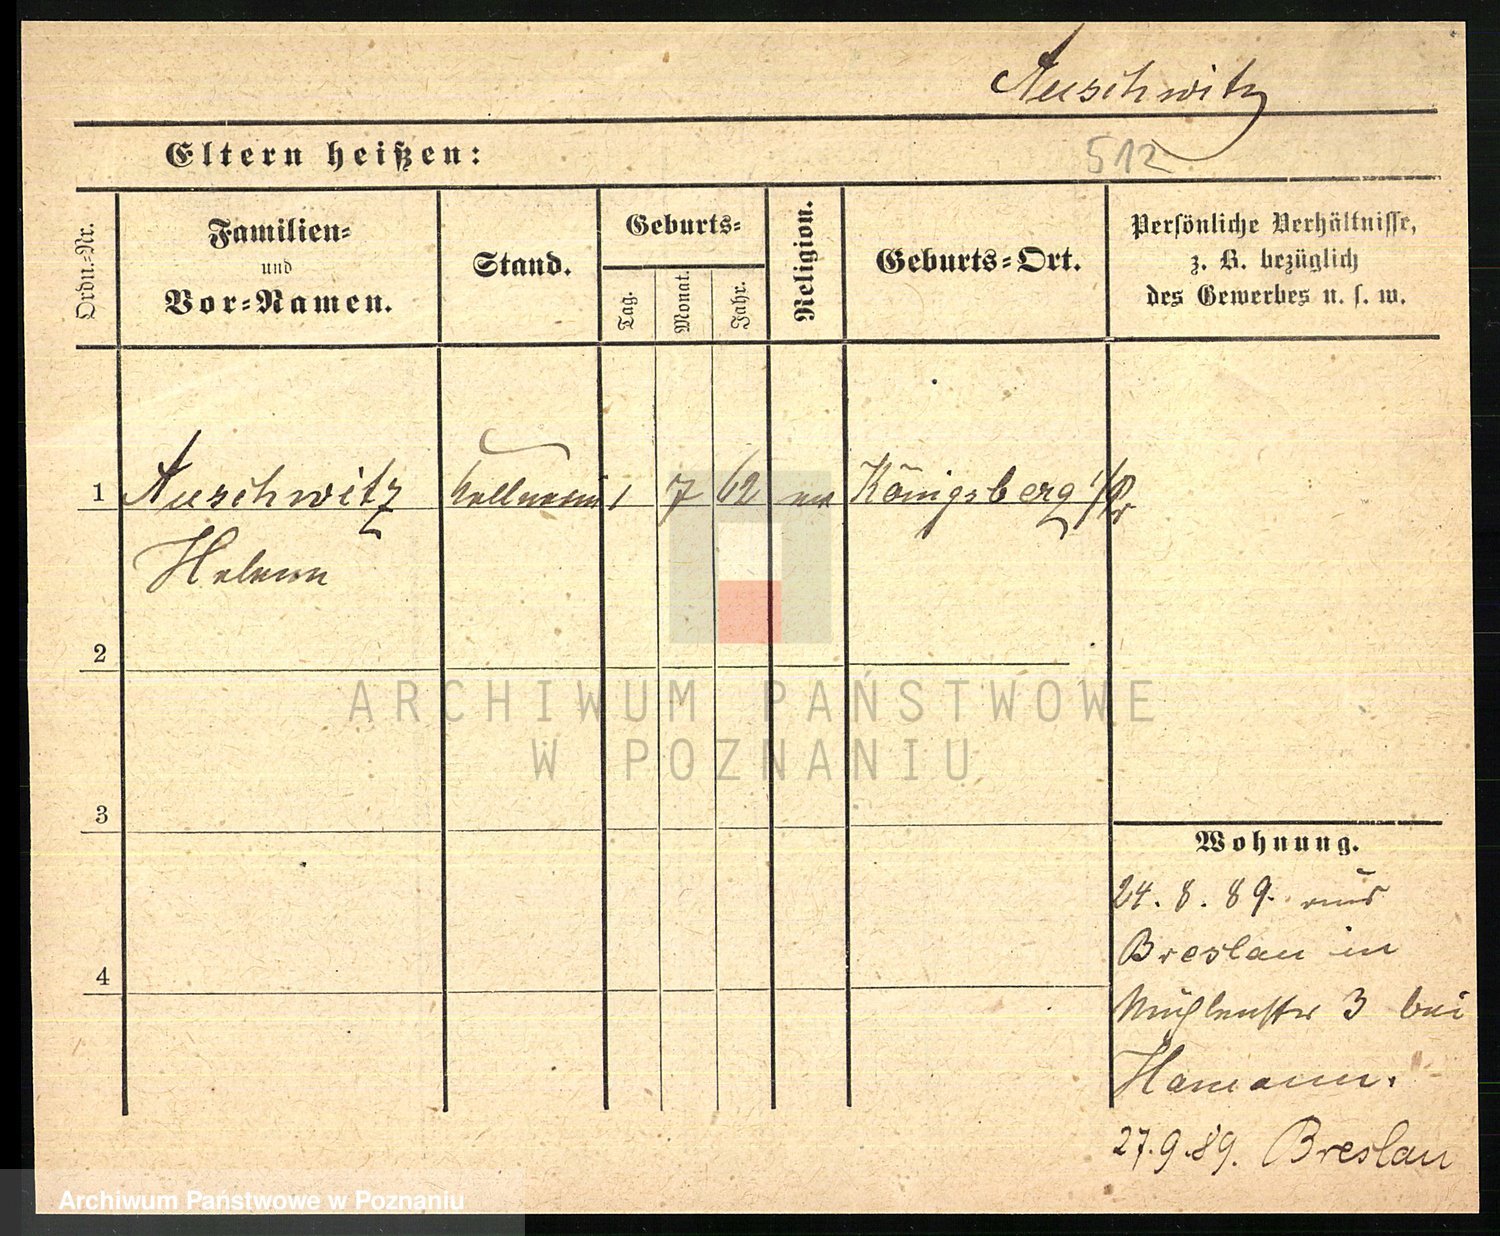 Auschwitz
Eltern heißen:
512
Ordn.-Nr.
Familien-
und
Vor-Namen.
Stand.
Geburts-
Tag.
Monat.
Jahr.
Religion.
Geburts-Ort.
Persönliche Verhältnisse,
z. B. bezüglich
des Gewerbes u. s. w.
1 Auschwitz 1 7 62 Königsberg i/Pr
Helene
2
ARCHIWUM PAŃSTWOWE
W POZNANIU
3
Wohnung.
24. 8. 89. aus
Breslau in
4
Mühlenstr 3 bei
Hamann.
27.9.89. Breslau
Archiwum Państwowe w Poznaniu